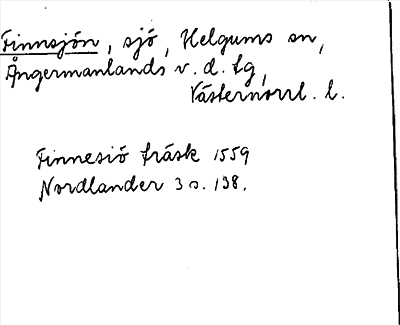 Finnsjön, sjö, Helgums sn,
Ångermanlands v. d. tg,
Västernorrl. l.
Finnesiö träsk 1559
Nordlander 3 s. 138.